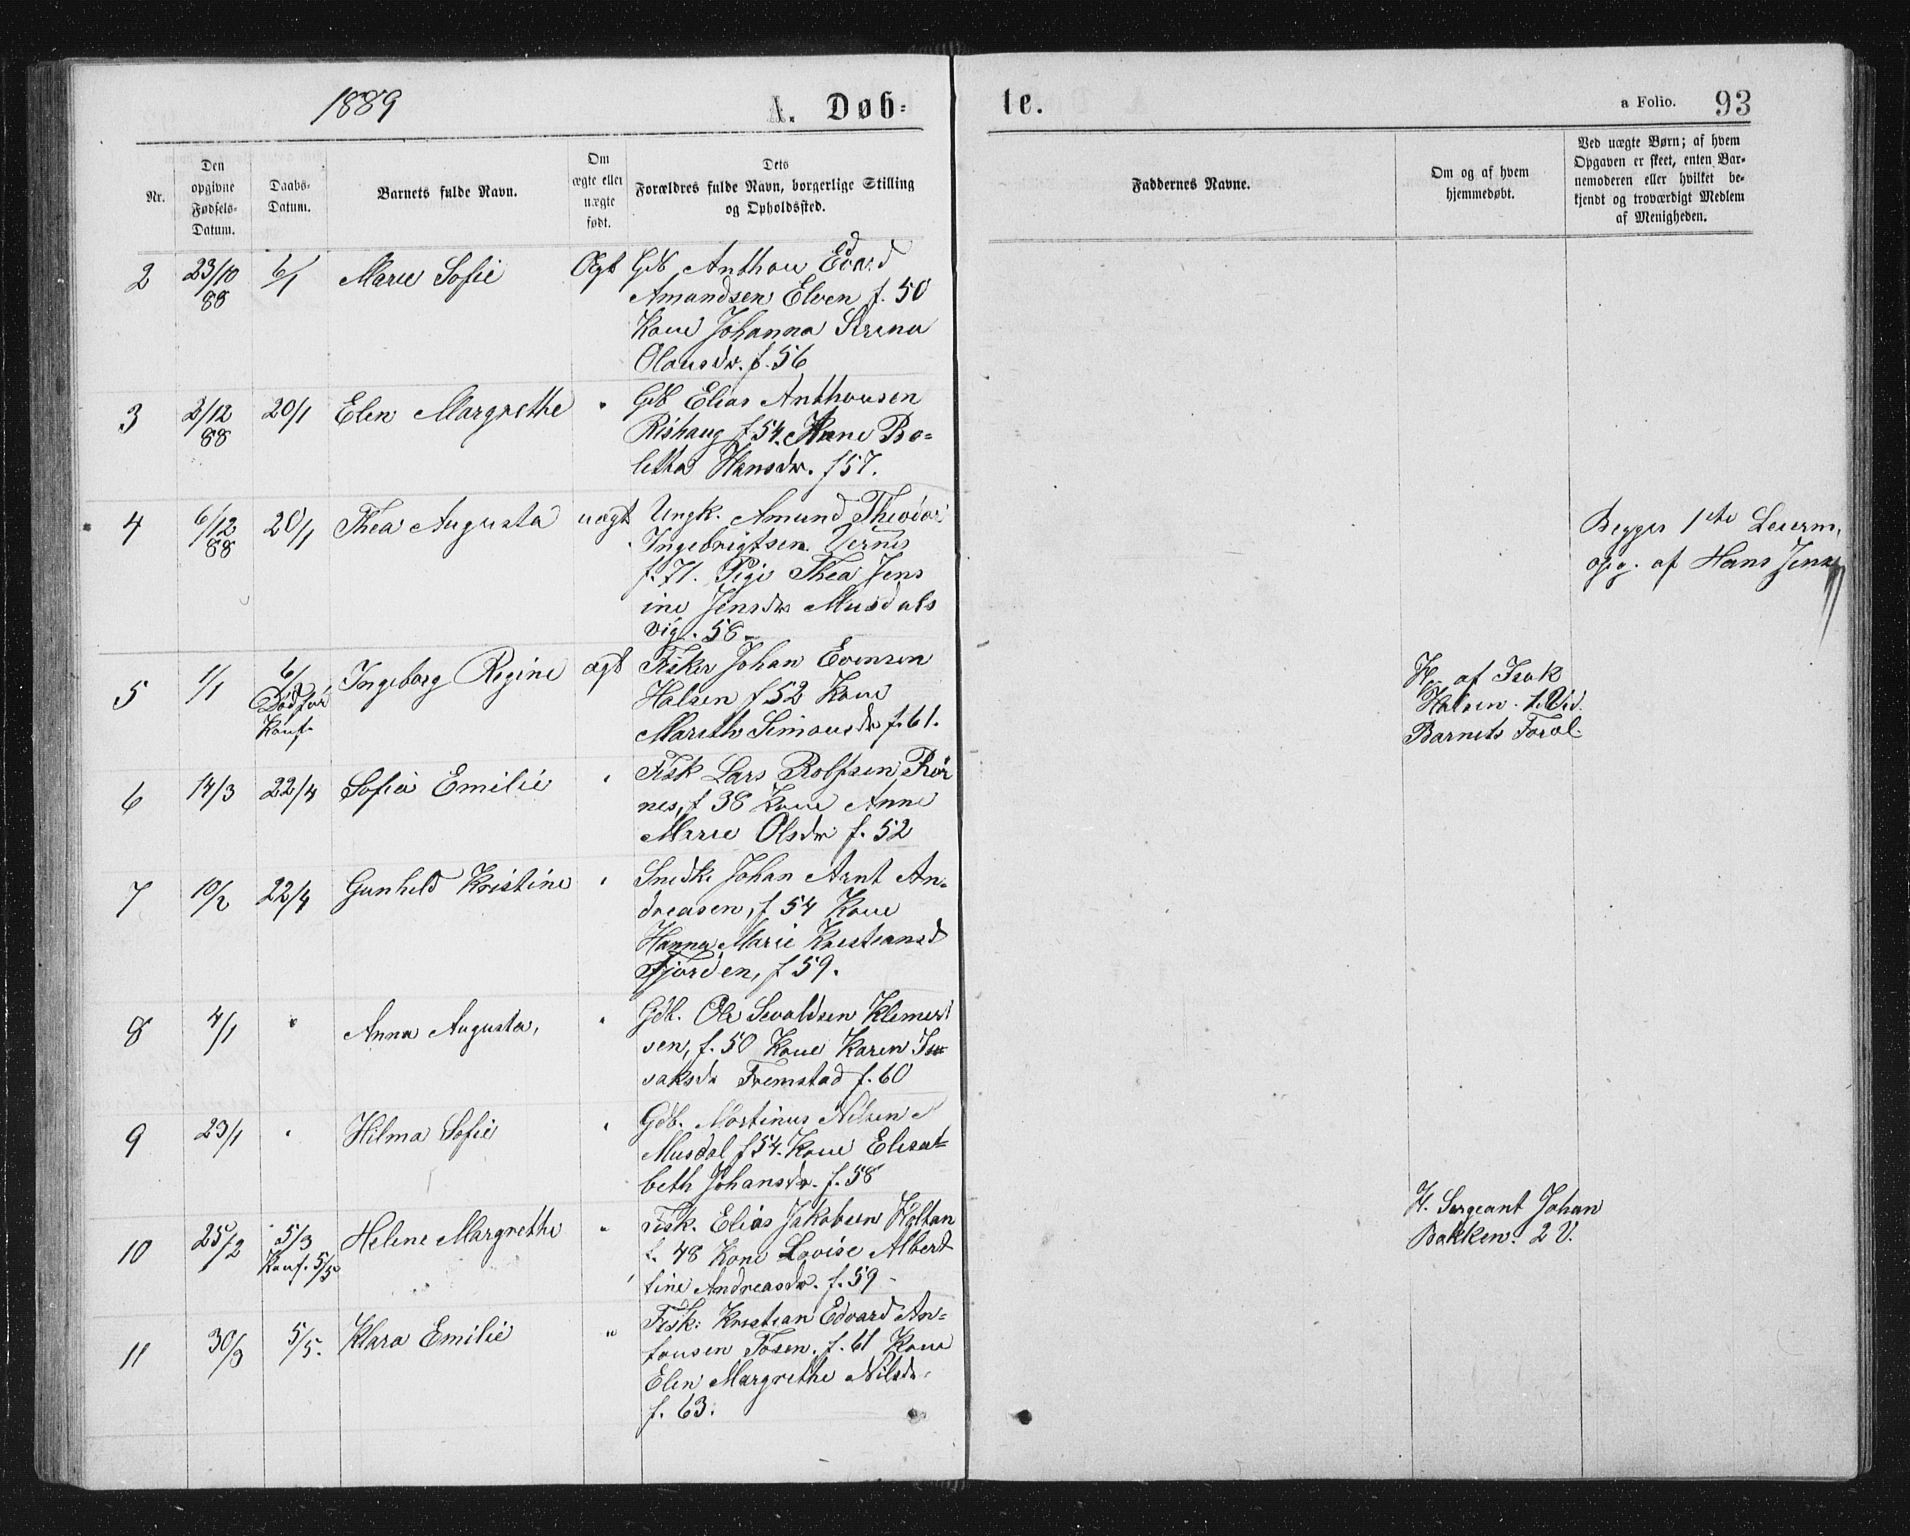 1889
A. Døb-
te.
a Folio. 93
Nr.
Den
opgivne
Fødsels-
Datum.
Daabs-
Datum.
Barnets fulde Navn.
Om
ægte eller
uægte
født.
Dets
Forældres fulde Navn, borgerlige Stilling
og Opholdssted.
Faddernes Navne.
Om og af hvem
hjemmedøbt.
Ved uægte Børn; af hvem
Opgaven er skeet, enten Bar-
nemoderen eller hvilket be-
kjendt og troværdigt Medlem
af Menigheden.
2 23/10 88 6/1 Marie Sofie Ægt Gdb Anthon Edvard
Amandsen Elven f. 50
Kone Johanna Serena
Olausdr. f. 56
3 2/12 88 20/1 Elen Margrethe " Gdb Elias Anthonsen
Rishaug f 54. Anne Bo-
letta Hansdr. f 57.
4 6/12 88 20/1 Thea Augusta uægt Ungk. Amund Theodor
Ingebrigtsen
f. 71. Pige Thea Jens
ine Jensdr Musdals
vig. 58
Begges 1ste Leierm.
opg. af Hans Jens
5 1/1 6/1 Død før Konf. Ingeborg Regine ægt Fisker Johan Evensen
Halsen f 52 Kone
Mareth Simonsdr f. 61.
H. af Isak
Halsen.
Barnets Foræl.
6 14/3 22/4 Sofie Emilie " Fisk Lars Rolfsen Rør
nes, f 38 Kone Anne
Marie Olsdr f. 52
7 10/2 22/4 Gunhild Kristine " Snedk. Johan Arnt An-
dreasen, f 54 Kone
Hanna Marie Kristiansd
Fjorden, f 59.
8 4/1 " Anna Augusta, " Gdb. Ole Sevaldsen Klemert
sen, f. 50 Kone Karen I-
saksdr Fremstad f. 60
9 23/1 " Hilma Sofie " Gdb. Martinus Nilsen
Musdal f 54. Kone Elisa-
beth Johansdr. f. 58
10 25/2 5/3 Konf. 5/5 Helene Margrethe " Fisk. Elias Jakobsen Holtan
f. 48 Kone Lovise Albert
tine Andreasdr. f. 59
H. Sergeant Johan
Bakken. 2 V.
11 30/3 5/5. Klara Emilie " Fisk: Kristian Edvard An-
tonsen Tosen. f. 61 Kone
Elen Margrethe Nilsdr.
f. 63.